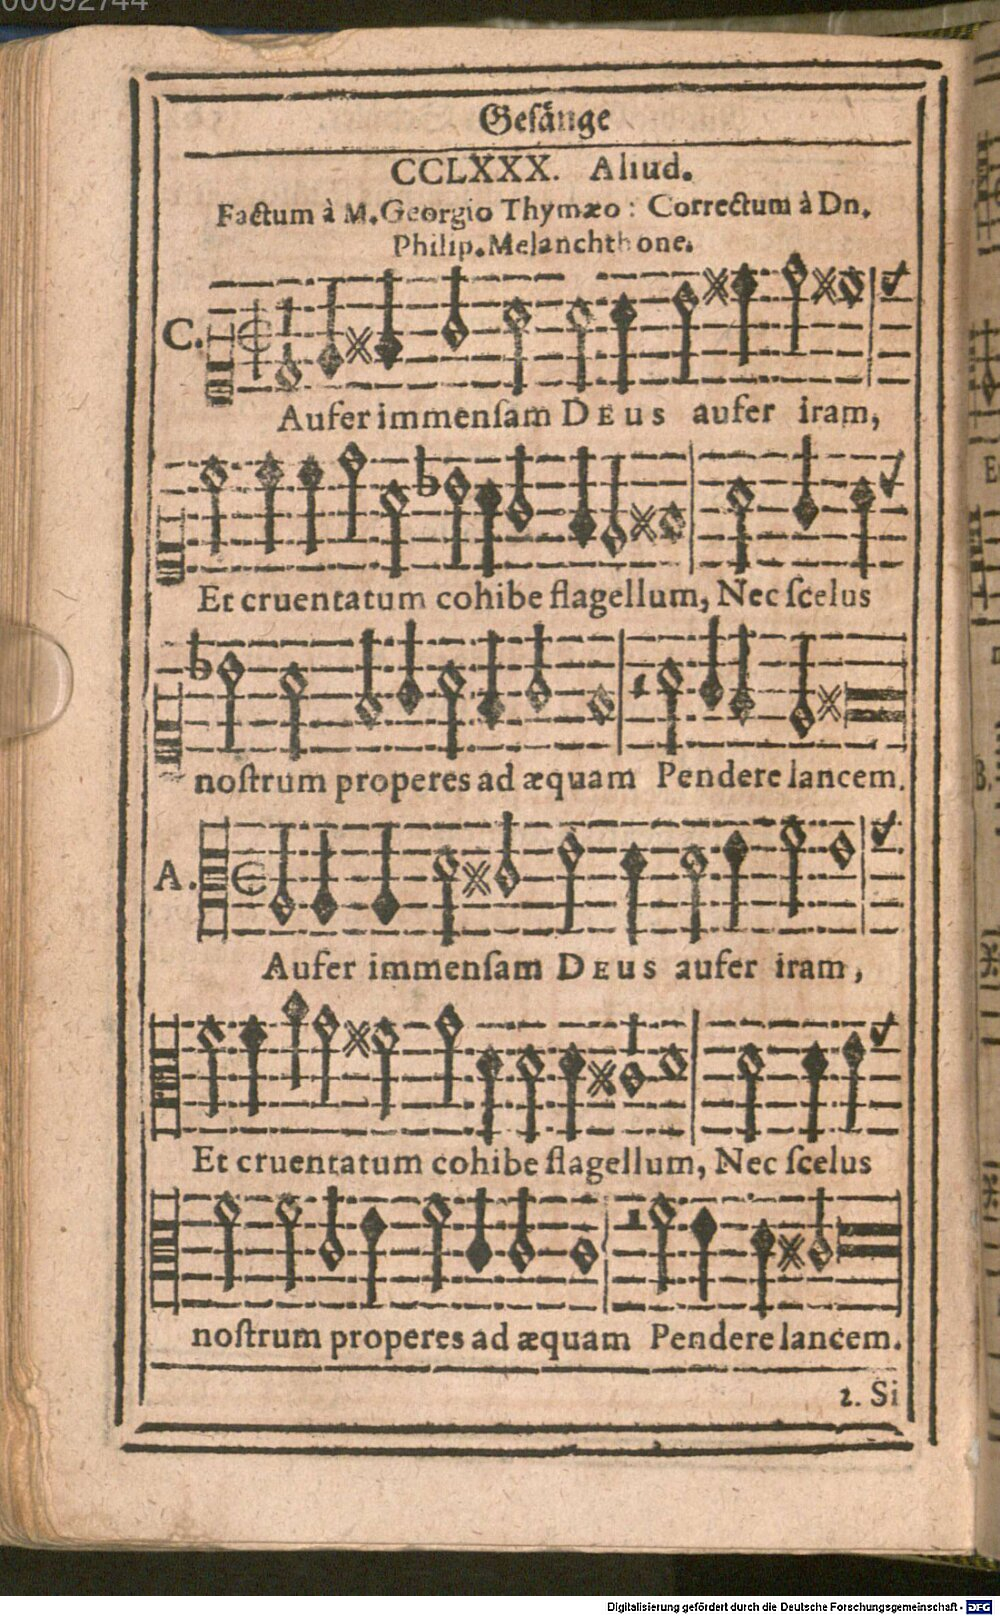 00092744
Gesänge
CCLXXX. Aliud.
Factum à M. Georgio Thymæo: Correctum à Dn.
Philip. Melanchthone.
C.
Aufer immenſam DEUS aufer iram,
Et cruentatum cohibe flagellum, Nec ſcelus
noſtrum properes ad æquam Pendere lancem.
A.
Aufer immenſam DEUS aufer iram,
Et cruentatum cohibe flagellum, Nec ſcelus
noſtrum properes ad æquam Pendere lancem.
2. Si
Digitalisierung gefördert durch die Deutsche Forschungsgemeinschaft - DFG